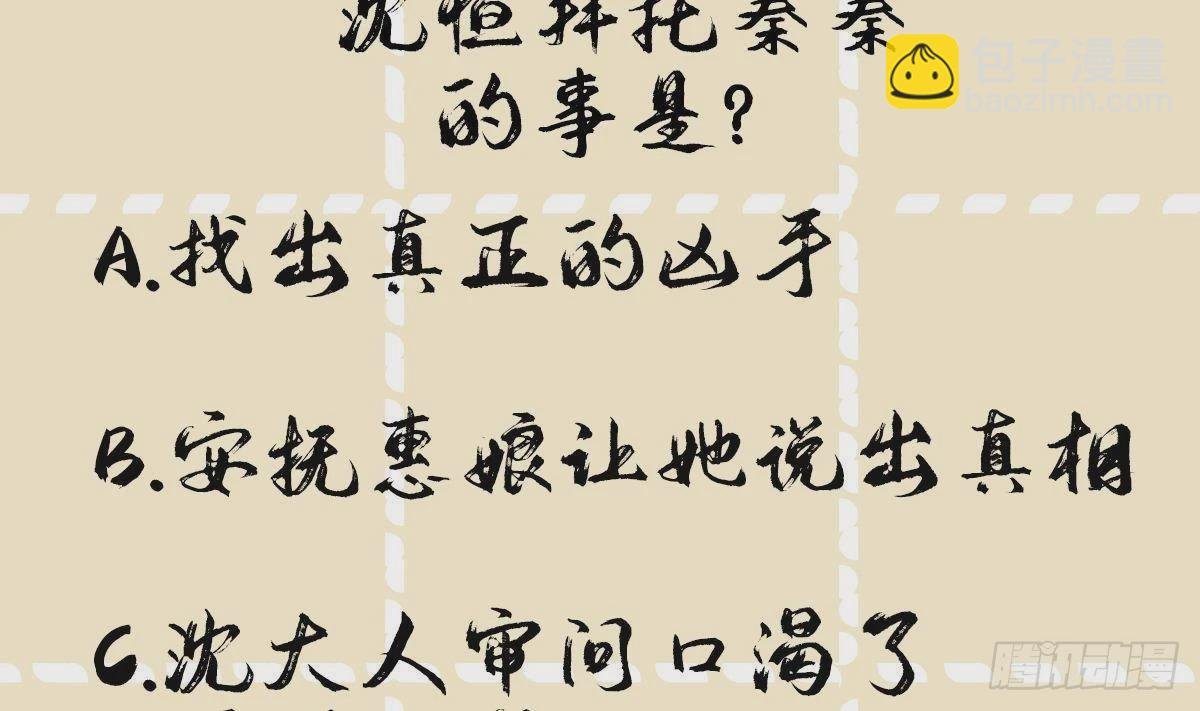 沈恒拜托秦秦
的事是?
包子漫畫
baozimh.com
A.找出真正的凶手
B.安抚惠娘让她说出真相
C.沈大人审问口渴了
腾讯动漫